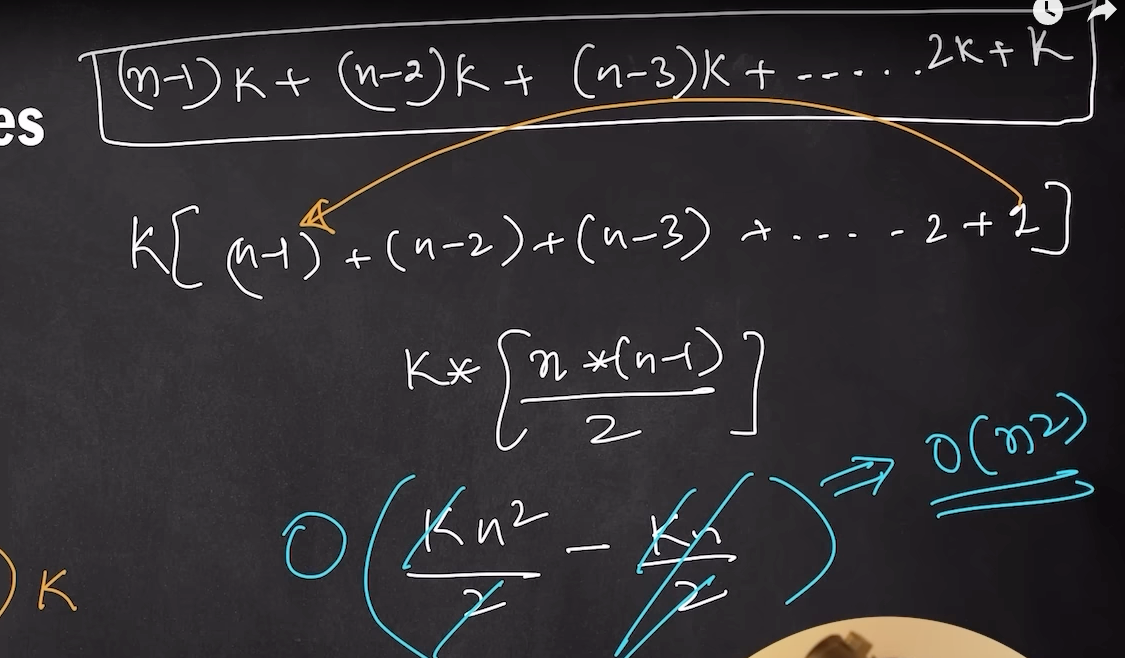 (n-1)K + (n-2)K + (n-3)K + ------.2K + K
es
K[ (n-1) + (n-2) + (n-3) + .... - 2 + 1 ]
K * [ n * (n-1) / 2 ]
O( Kn² / 2 - Kn / 2 ) ⇒ O(n²)
) K